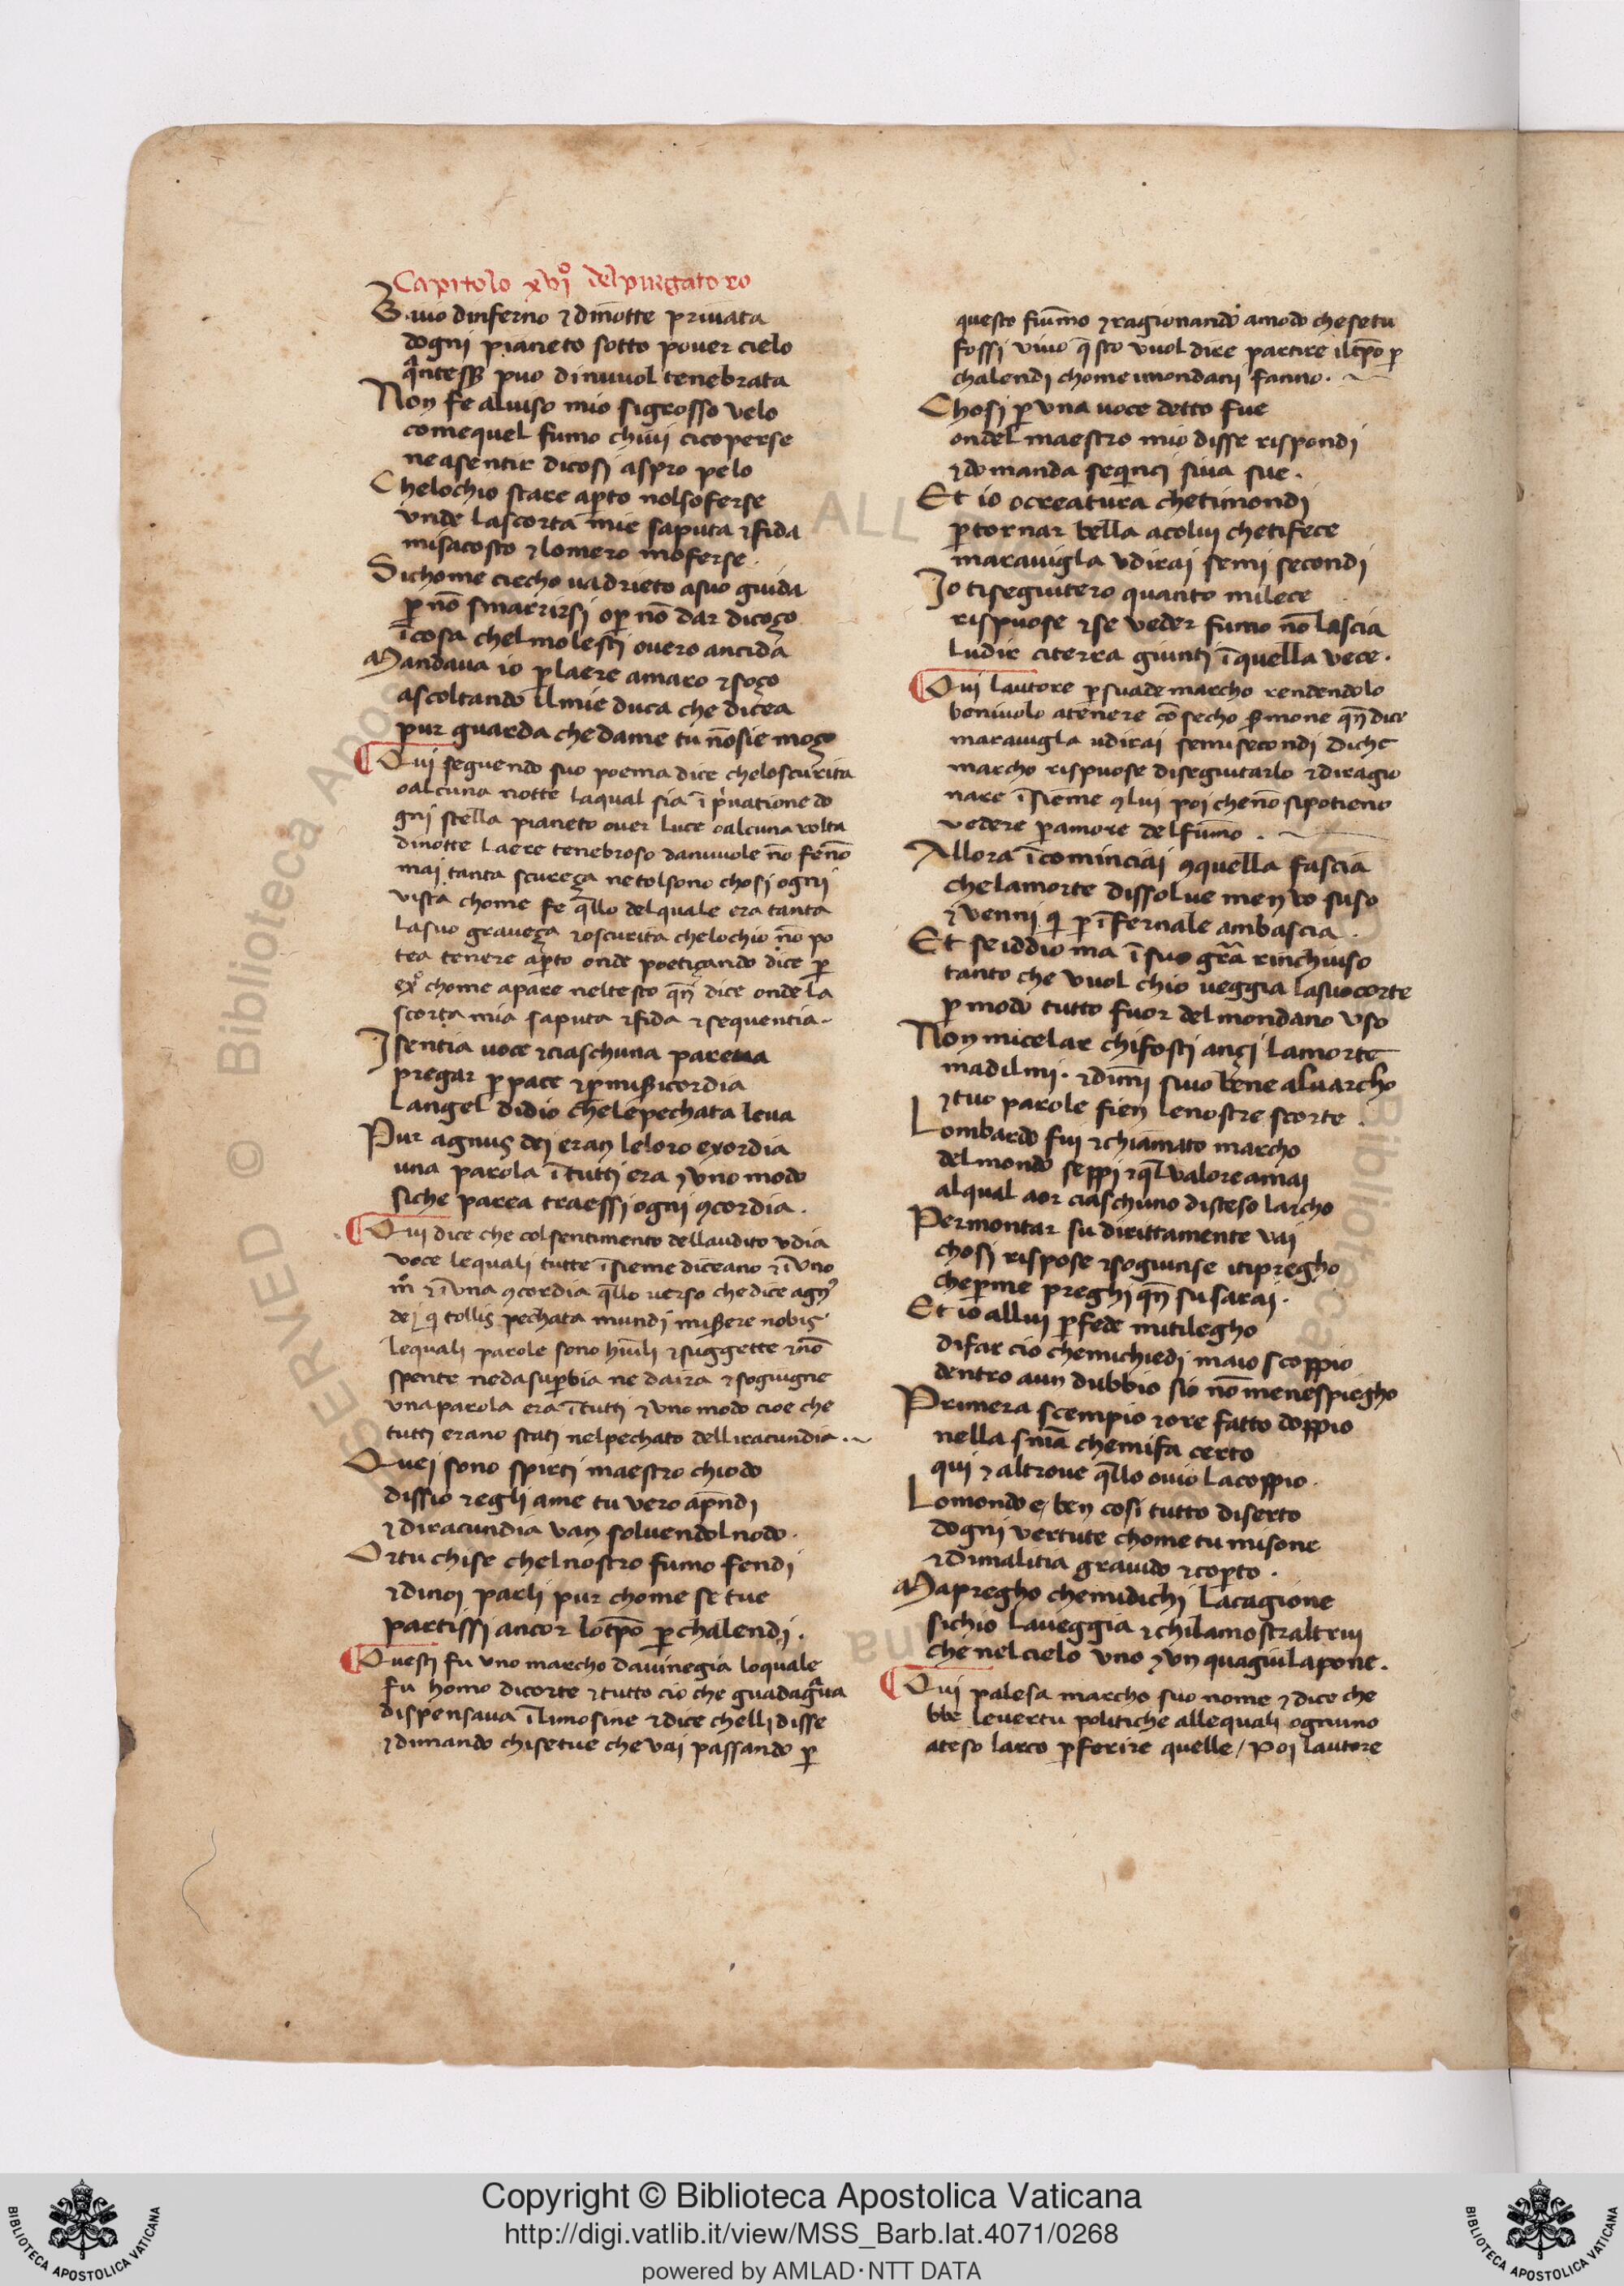 Capitolo xvjº del purgatoro
Buio dinferno ⁊ dinotte priuata
dogni pianeto sotto pouer cielo
qͣntesſ puo dinuuol tenebrata
Non fe aluiso mio sigrosso velo
comequel fumo chiuj cicoperse
neasentir dicosj aspro pelo
Chelochio stare apto nolsoferse
vnde lascorta mie saputa ⁊fida
misacosto ⁊lomero moferse.
Sichome ciecho uadrieto asuo guida
p nō smarrirsi op nō dar dicoço
ī cosa chelmolestj ouero ancida
Mandaua io plaere amaro ⁊soço
ascoltando ilmie duca che dicea
pur guarda chedame tu nōsie moço
Qui seguendo suo poema dice cheloscurita
oalcuna notte laqual sia ī pͥuatione do
gnj stella pianeto ouer luce oalcuna volta
dinotte laere tenebroso danuuole nō fenō
maj tanta scureça netolsono chosj ognj
vista chome fe q̄llo delquale era tanta
lasuo graueça ⁊oscurita chelochio nō po
tea tenere apto onde poetiçando dice p
exº chome apare neltesto qn̄ dice onde la
scorta mia saputa ⁊fida ⁊sequentia.
Isentia uoce ⁊ciaschuna pareua
pregar p pace ⁊p misericordia
Langel didio chelepechata leua
Pur agnus dej eran leloro exordia
una parola ī tuttj era ⁊ vno modo
siche parea traessj ognj ꝯcordia.
Qui dice che colsentimento dellaudito vdia
voce lequali tutte īsieme diceano ⁊ īvno
mº ⁊ īvna ꝯcordia q̄llo uerso chedice agnꝰ
dej qͥ tollis pechata mundj misere nobis
lequali parole sono humili ⁊suggette ⁊nō
spente nedasupbia ne daira ⁊ soguigne
vnaparola era ītuttj ⁊vno modo cioe che
tuttj erano statj nelpechato delliracundia.
Quej sono spirtj maestro chiodo
dissio ⁊eglj ame tu vero apndj
⁊diracundia van soluendol nodo.
Ortu chise chelnostro fumo fendj
⁊dinoj parli pur chome se tue
partissj ancor lotpo p chalendj.
Questj fu vno marcho dauinegia loquale
fu homo dicorte ⁊tutto cio che guadagͣua
dispensaua īlimosine ⁊dice chellj disse
⁊dimando chisetue che vai passando p
questo fummo ⁊ragionando amodo chesetu
fossj viuo q̄sto vuol dire partire iltpo p
chalendj chome imondanj fanno.
Chosj p vna uoce detto fue
ondel maestro mio disse rispondj
⁊domanda seqͥncj siua sue.
Et io ocreatura chetimondj
ptornar bella acoluj chetifece
marauigla vdirai semj secondj
Io tiseguitero quanto milece
rispuose ⁊se veder fumo nō lascia
ludir citerra giuntj īquella vece.
Qui lautore psuade marcho rendendolo
beniuolo atenere cō secho sermone qn̄dice
marauigla udirai semisecondj Diche
marcho rispuose diseguitarlo ⁊diragio
nare īsieme ꝯlui poj chenō sipotieno
vedere pamore delfumo.
Allora īcominciaj ꝯquella fascia
chelamorte dissolue men vo suso
⁊venni qͥ p īfernale ambascia.
Et seiddio ma īsuo grā rinchiuso
tanto che vuol chio ueggia lasuocorte
p modo tutto fuor del mondano vso
Non micelar chifostj ançj lamorte
madilmi. ⁊dimj siuo bene aluarcho
⁊tuo parole fien lenostre scorte.
Lombardo fui ⁊chiamato marcho
delmondo seppj ⁊q̄lvaloreamaj
alqual aor ciaschuno disteso larcho
Permontar su dirittamente vai
chosj rispose ⁊soguinse itipregho
cheperme preghj qn̄ susarai.
Et io alluj pfede mitilegho
difar cio chemichiedj maio scoppio
dentro aun dubbio sio nō menespiegho
Primera scempio ⁊ore fatto doppio
nella snīa chemifa certo
qui ⁊altroue q̄llo ouio lacoppio.
Lomondo e ben cosi tutto diserto
dognj vertute chome tu misone
⁊dimalitia grauido ⁊copto.
Mapregho chemidichj lacagione
sichio laueggia ⁊chilamostraltruj
che nelcielo vno ⁊vn quaguilapone.
Qui palesa marcho suo nome ⁊ dice che
bbe leuertu politiche allequalj ognuno
ateso larco pferire quelle / Poj lautore
Copyright © Biblioteca Apostolica Vaticana
http://digi.vatlib.it/view/MSS_Barb.lat.4071/0268
powered by AMLAD·NTT DATA
BIBLIOTECA APOSTOLICA VATICANA
BIBLIOTECA APOSTOLICA VATICANA